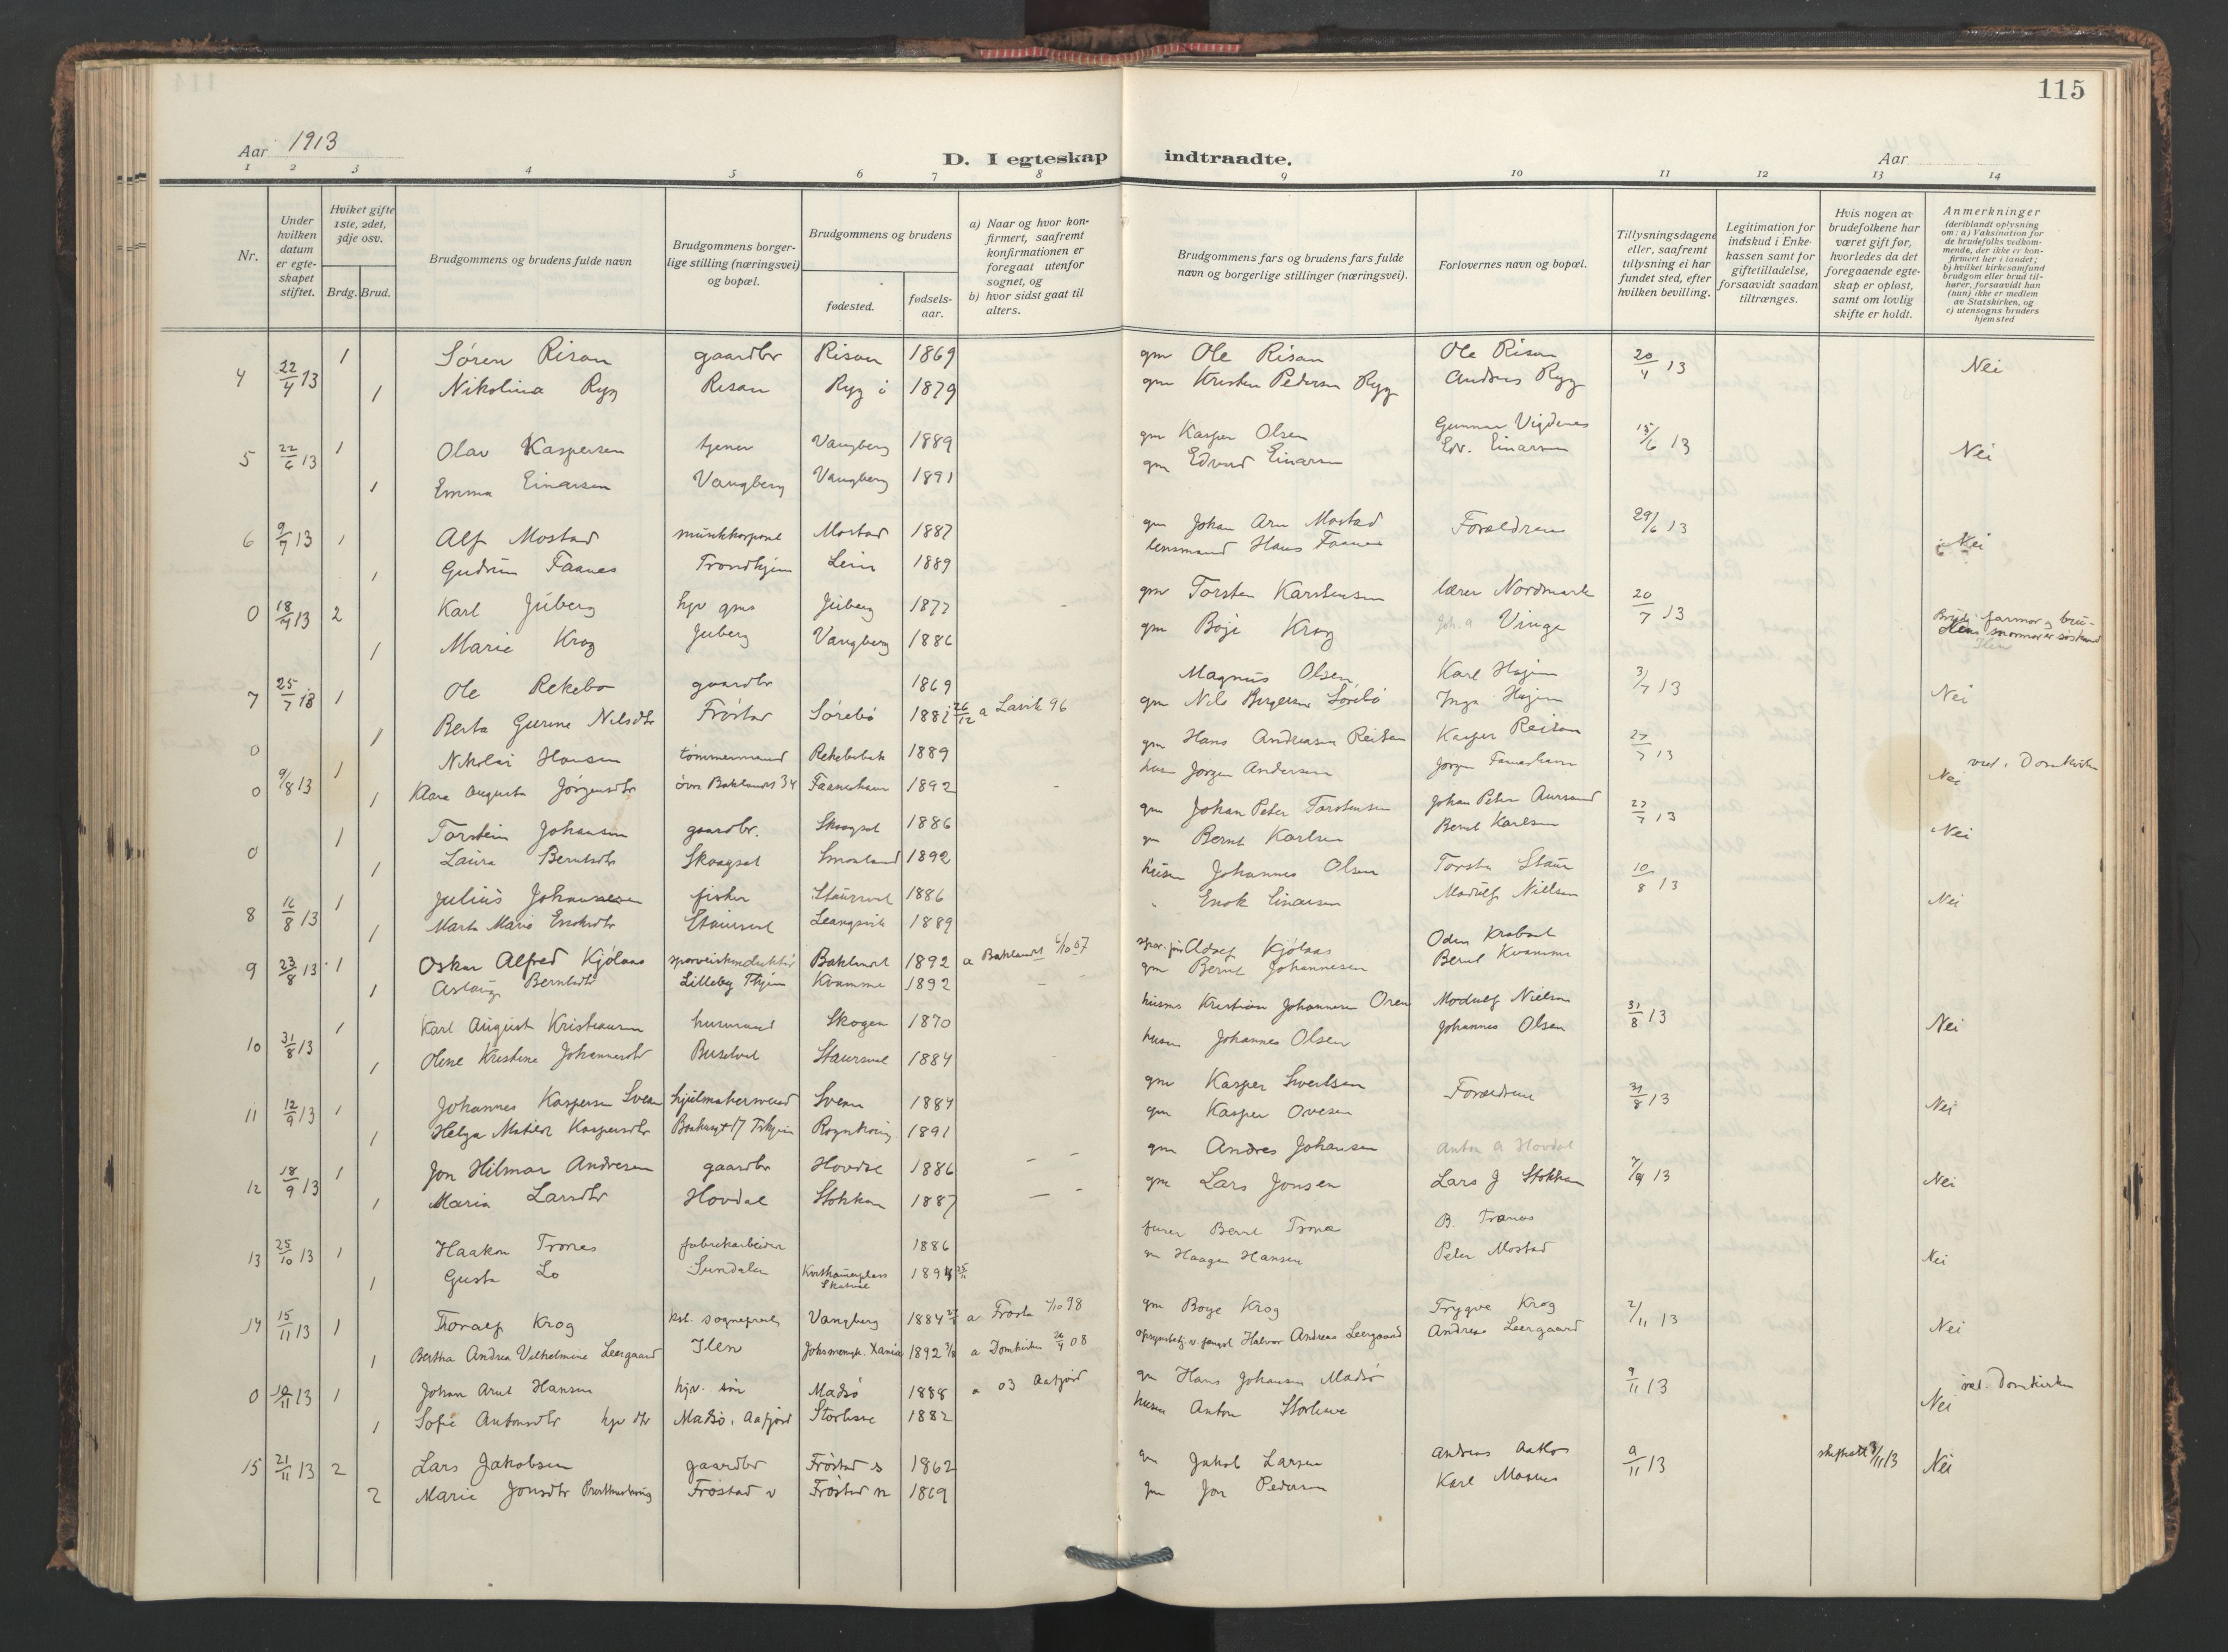 115
Aar 1913
D. I egteskap indtraadte.
Aar
1 2 3 4 5 6 7 8 9 10 11 12 13 14
Nr.
Under hvilken datum er egteskapet stiftet.
Hvilket gifte 1ste, 2det, 3dje osv.
Brdg. Brud.
Brudgommens og brudens fulde navn
Brudgommens borgerlige stilling (næringsvei) og bopæl.
Brudgommens og brudens
fødested.
fødsels-aar.
a) Naar og hvor konfirmert, saafremt konfirmationen er foregaat utenfor sognet, og
b) hvor sidst gaat til alters.
Brudgommens fars og brudens fars fulde navn og borgerlige stillinger (næringsvei).
Forlovernes navn og bopæl.
Tillysningsdagene eller, saafremt tillysning ei har fundet sted, efter hvilken bevilling.
Legitimation for indskud i Enkekassen samt for giftetilladelse, forsaavidt saadan tiltrænges.
Hvis nogen av brudefolkene har været gift før, hvorledes da det foregaaende egteskap er opløst, samt om lovlig skifte er holdt.
Anmerkninger (deriblandt oplysning om: a) Vaksination for de brudefolks vedkommende, der ikke er konfirmert her i landet; b) hvilket kirkesamfund brudgom eller brud tilhører, forsaavidt han (hun) ikke er medlem av Statskirken, og c) utensogns bruders hjemsted
4 22/4 13 1 Sören Risan gaardbr Risan 1869 gm Ole Risan Ole Risan 20/4 13 Nei
1 Nikolina Ryg Risan Ryg i 1879 gm Kristen Pedersen Ryg Andreas Ryg
5 22/6 13 1 Olav Kaspersen tjener Vangberg 1889 gm Kasper Olsen Gunnar Vigdenes 15/6 13 Nei
1 Emma Einarsen Vangberg Vangberg 1891 gm Edvard Einarsen Edv. Einarsen
6 9/7 13 1 Alf Mostad musikkorporal Mostad 1887 gm Johan Arn Mostad Forældrene 29/6 13 Nei
1 Gudrun Faanes Trondhjem Lein 1889 lensmand Hans Faanes
0 18/7 13 2 Karl Juberg hjv gms Juberg 1877 gm Torsten Karstensen lærer Nordmark 20/7 13
1 Marie Krog Juberg Vangberg 1886 gm Böje Krog Joh. A Vinge
7 25/7 13 1 Ole Rekebo gaardbr 1869 Magnus Olsen Karl Hojem 3/7 13 Nei
1 Berta Gurine Nilsdtr Fröstad Sörebö 1881 26/12 a Lavik 96 gm Nils Börgersen Sörebö Inga Hojem
0 Nikolai Hansen tömmermand Rekebobak 1889 gm Hans Andreasen Reitan Kasper Reitan 27/7 13 vied i Domkirken
0 9/8 13 1 1 Klara Augusta Jörgensdtr övre Baklandet 34 Faaneshavn 1892 Jörgen Andersen Nei
0 1 Torstein Johansen gaardbr. Skaagset 1886 gm Johan Peter Torstensen Johan Peter Aursand 27/7 13 Nei
1 Laura Berntsdtr Skaagset 1892 gm Bernt Karlsen Bernt Karlsen
8 16/8 13 1 Julius Johannesen fisker Staursvel 1886 husm Johannes Olsen 10/8 13 Nei
1 Marta Marie Enoksdtr Staursvel Leangsvik 1889 " Enok Einarsen Modulf Nielsen
9 23/8 13 1 Oskar Alfred Kjölaas sporveiskonduktör Baklandet 1892 a Baklandet 6/10 07 Kjölaas
1 Aslaug Berntsdtr Lilleby Thjem Kvamme 1892 gm Bernt Johannesen Bernt Kvamme
10 31/8 13 1 Karl August Kristiansen husmand Skogen 1870 husms Kristian Johannesen Oren Modulf Nielsen 31/8 13 Nei
1 Oline Kristine Johannesdtr Staursvel 1884 husm Johannes Olsen Johannes Olsen
11 12/9 13 1 Johannes Kaspersen Svean hjulmakersvend Svean 1884 gm Kasper Sivertsen Forældrene 31/8 13 Nei
1 Helga Matilde Kaspersdtr 1891 gm Kasper Ovesen
12 18/9 13 1 Jon Hilmar Andresen gaardbr Hovdal 1886 — - gm Andres Johansen Anton A Hovdal 7/9 13 Nei
1 Maria Larsdtr Hovdal Stokkan 1887 — - gm Lars Jonsen Lars J Stokkan
13 25/10 13 1 Haakon Trones fabrikarbeider 1886 furer Bernt Trones B. Trones Nei
1 Gusta Lo Sundalen 1894 gm Haagen Hansen Peter Mostad
14 15/11 13 1 Toralf Krog kst. sogneprest Vangberg 1884 a Frosta 2/10 98 gm Boye Krog Trygve Krog 2/11 13 Nei
1 Bertha Andrea Vilhelmine Leergaard Ilen Johsmenigh. Xania 1892 a Domkirken 26/4 08 Halvor Andreas Leergaard Andreas Leergaard
0 /11 13 1 Johan Arnt Hansen hjv. sön Madsö 1888 a 03 Aafjord gm Hans Johansen Madsö 9/11 13 vied. Domkirken
1 Sofie Antonsdtr hjv dtr Madsö, Aafjord Storhove 1882 husm Anton Storhove Nei
15 21/11 13 2 Lars Jakobsen gaardbr Fröstad s 1862 gm Jakob Larsen Andreas Aaklos 9/11 13 Nei
2 Marie Jonsdtr Fröstad v Fröstad n 1869 gm Jon Pedersen Karl Mosnes